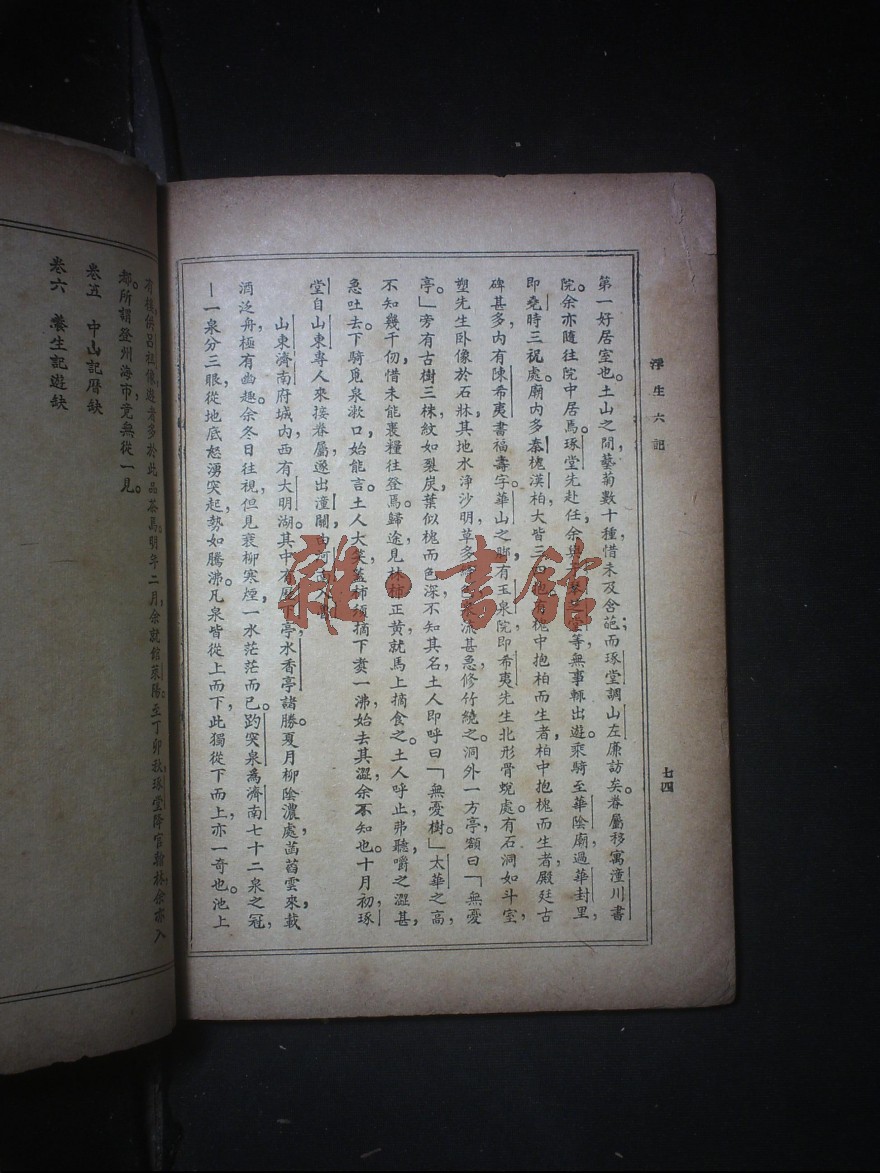 浮生六記
七四
第一好居室也。土山之間,藝菊數十種,惜未及含葩,而琢堂調山左廉訪矣。眷屬移寓潼川書
院。余亦隨往院中居焉。琢堂先赴任,余與子琴芝堂等無事,輒出遊。乘騎至華陰廟,過華封里,
即堯時三祝處。廟內多秦槐漢柏,大皆三四抱,有槐中抱柏而生者,柏中抱槐而生者,殿廷古
碑甚多,內有陳希夷書福壽字。華山之脚有玉泉院,即希夷先生北形骨蛻處。有石洞如斗室,
塑先生卧像於石牀。其地水淨沙明,草多絳色,泉流甚急,修竹繞之。洞外一方亭,額曰「無憂
亭。」旁有古樹三棟,紋如裂炭,葉似槐而色深,不知其名,土人即呼曰「無憂樹。」太華之高,
不知幾千仞,惜未能裹糧往登焉。歸途見林柿正黄,就馬上摘食之。土人呼止,弗聽,嚼之澀甚,
急吐去。下騎覓泉漱口,始能言。土人大笑。蓋柿須摘下煑一沸,始去其澀,余不知也。十月初,琢
堂自山東專人來接眷屬,遂出潼關,由河南入魯。
山東濟南府城內,西有大明湖。其中有歷下亭水香亭諸勝。夏月柳陰濃處,菡萏雲來,載
酒泛舟,極有曲趣。余冬日往視,但見衰柳寒煙,一水茫茫而已。趵突泉爲濟南七十二泉之冠,
一泉分三眼,從地底怒湧突起,勢如騰沸。凡泉皆從上而下,此獨從下而上,亦一奇也。池上
有樓,供呂祖像,遊者多於此品茶焉。明年二月,余就館萊陽。至丁卯秋,琢堂降官翰林,余亦入
都。所謂登州海市,竟無從一見。
卷五 中山記曆缺
卷六 養生記遊缺
雜·書館